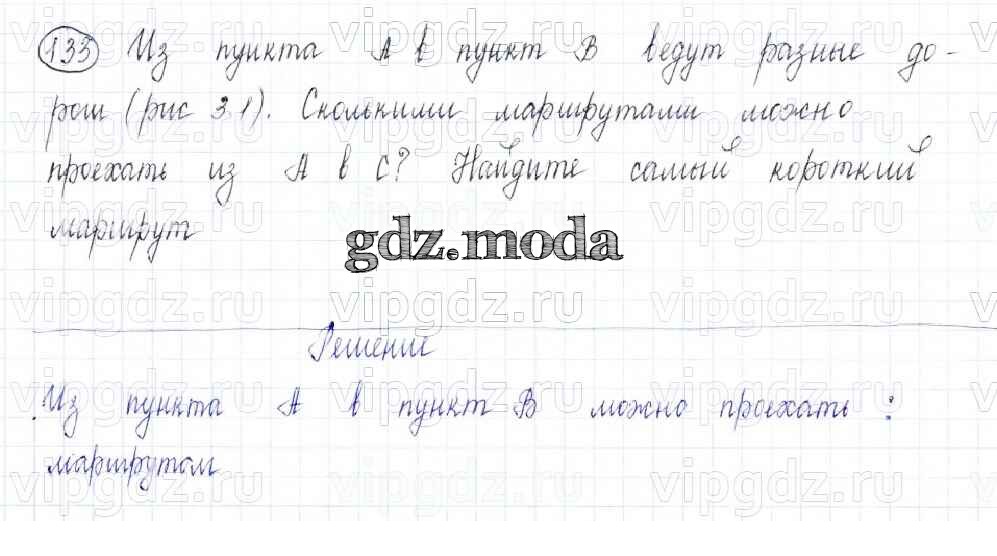 133 Из пункта А в пункт В ведут разные до-
роги (рис 3.1). Сколькими маршрутами можно
проехать из А в С? Найдите самый короткий
маршрут
gdz.moda
Решение
Из пункта А в пункт В можно проехать:
маршрутом
vipgdz.ru